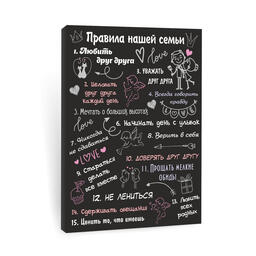 Правила нашей семьи
1. Любить
друг друга
love
2. Целовать
друг друга
каждый день
3. УВАЖАТЬ
ДРУГ ДРУГА
4. Всегда говорить
правду
5. Мечтать о больших высотах
love
6. Начинать день с улыбок
7. Никогда
не сдаваться
8. Верить в себя
LOVE
9. Стараться
делать
все вместе
10. ДОВЕРЯТЬ ДРУГ ДРУГУ
11. Прощать мелкие
обиды
12. НЕ ЛЕНИТЬСЯ
13. Любить
всех
родных
14. Сдерживать обещания
15. Ценить то, что имеешь